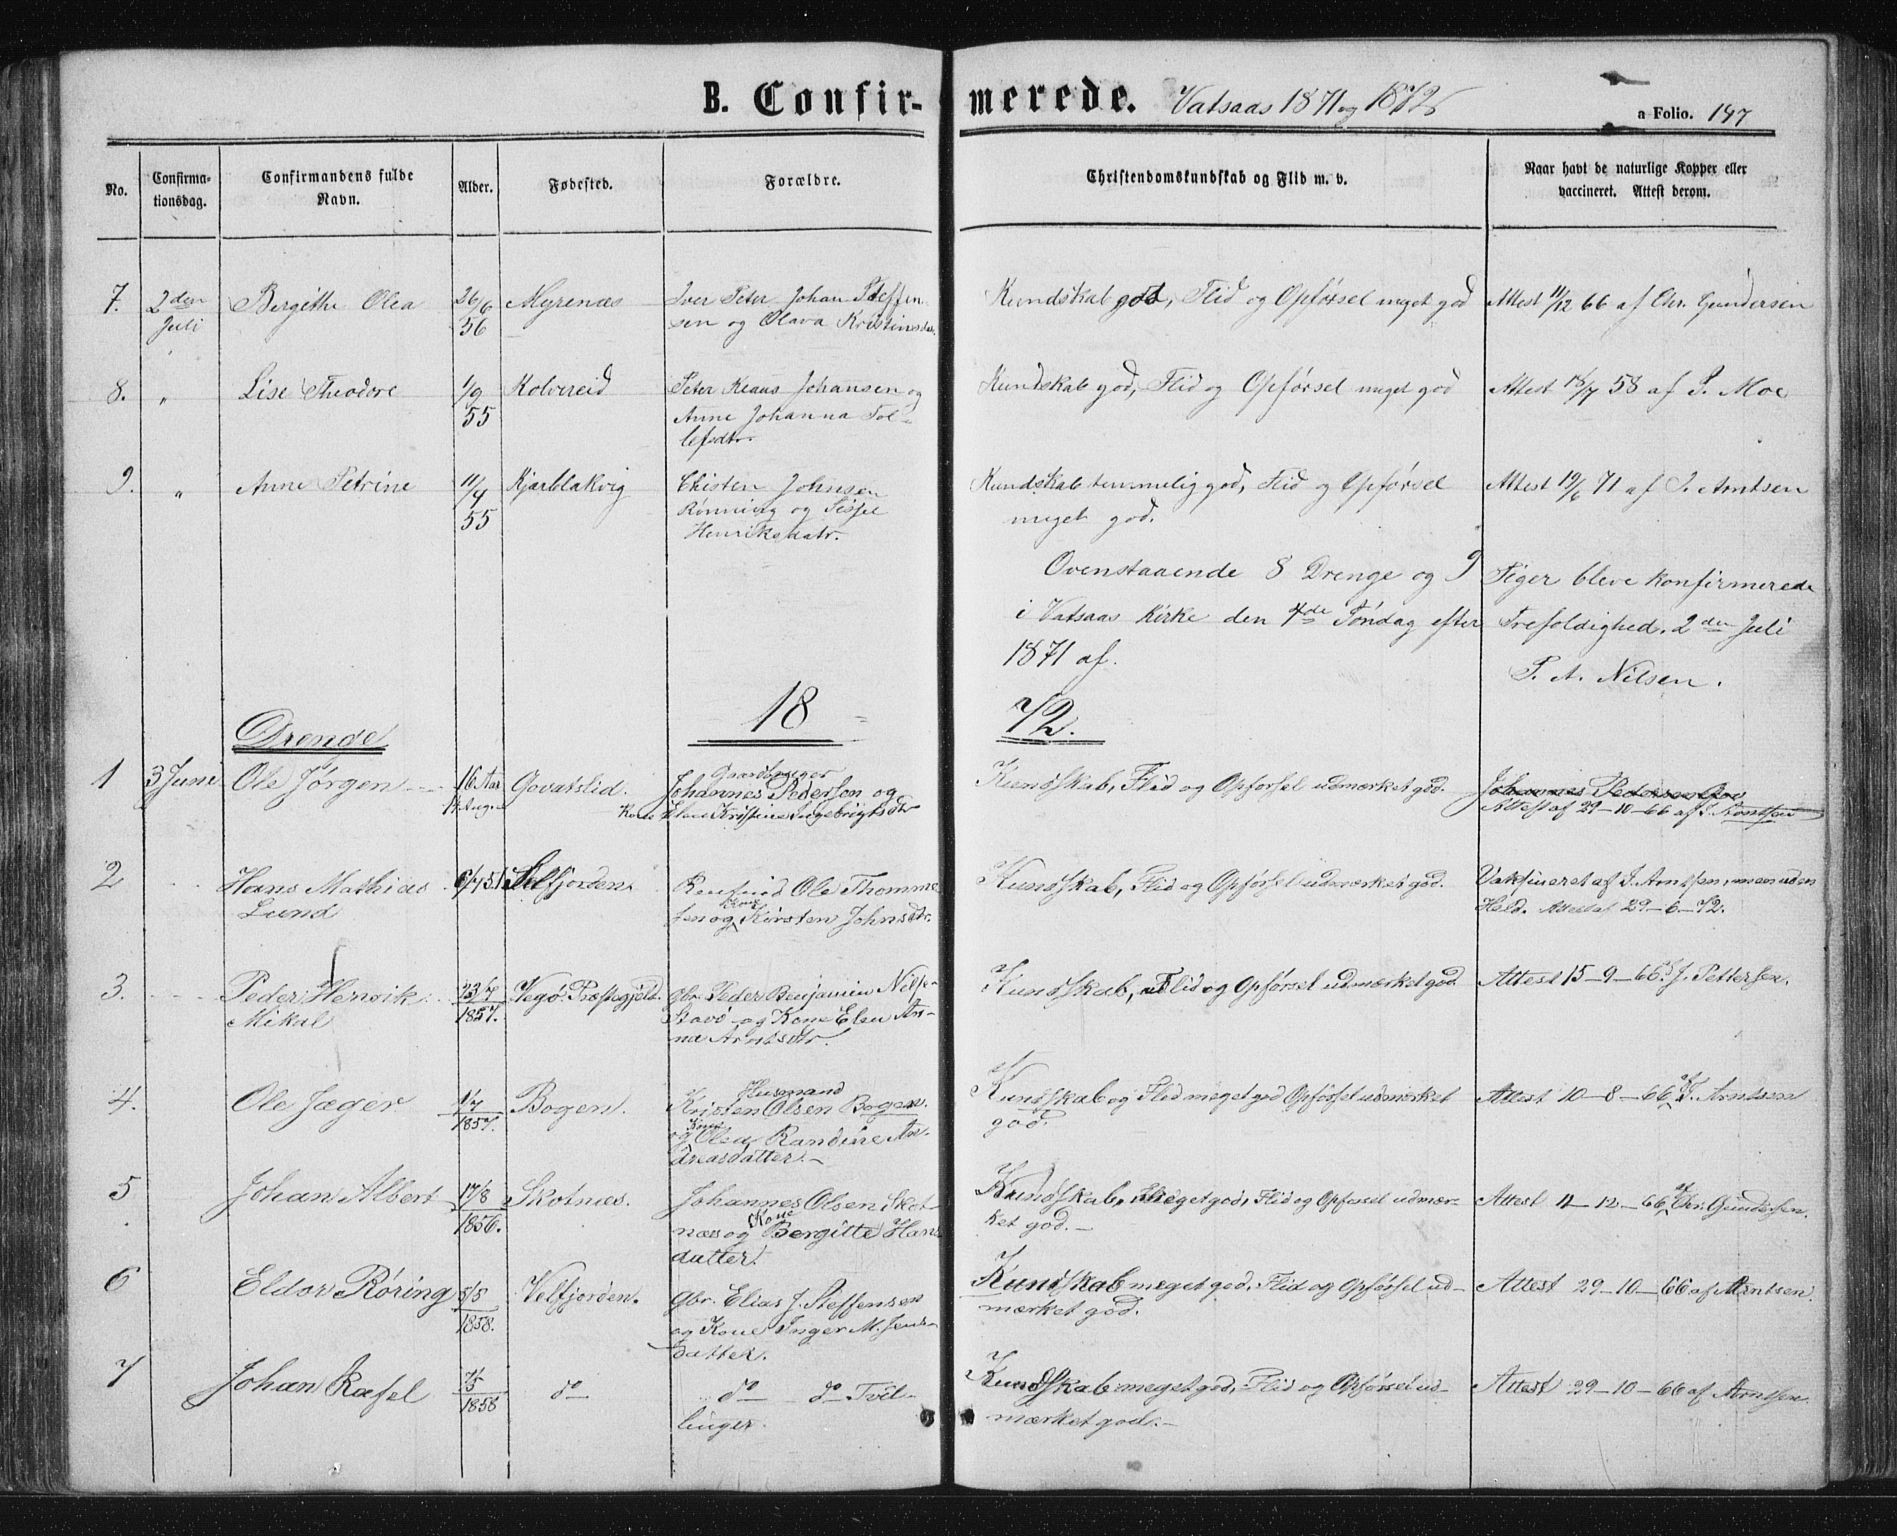 B. Confir- merede. Vatsaas 1871 og 1872
a Folio. 147
No. Confirma-tionsdag. Confirmandens fulde Navn. Alder. Fødested. Forældre. Christendomskundskab og Flid m. v. Naar havt de naturlige Kopper eller vaccineret. Attest derom.
7. 2den Juli Bergithe Olea 26/6 56 Myrenæs Iver Peter Johan Steffen- Kundskab god, Flid og Opførsel meget god Attest 11/12 66 af Chr. Gundersen
sen og Olava Kristinsdtr.
8. " Lise Theodore 1/9 55 Kolvereid Peter Klaus Johansen og Kundskab god, Flid og Opførsel meget god Attest 18/7 58 af P. Moe
Anne Johanna Tol-
lefsdtr.
9. " Anne Petrine 11/4 55 Kjærblakvig Chisten Johnsen Kundskab temmelig god, Flid og Opførsel Attest 19/6 71 af I. Arntsen
Rønning og Sissel meget god.
Henriksdatr.
Ovenstaaende 8 Drenge og 9 Piger bleve konfirmerede
i Vatsaas Kirke den 4de Søndag efter Trefoldighed, 2den Juli
1871 af.
P. A. Nilsen.
18 72.
Drenge
1 3 Juni Ole Jørgen 16 Aar Govatslid. Gaardbruger Kundskab, Flid og Opførsel udmærket god. Johannes Pedersen Gov
Johannes Pederson og Attest af 29-10-66 af I. Arntsen
Kone Elen Kristine Ingebrigtsdtr
2 Hans Mathias 6/7 51 Velfjorden. Ole Thomme- Kundskab, Flid og Opførsel udmærket god. Vaksineret af I. Arntsen, men uden
Lund sen og Kone Kirsten Johnsdtr. Held. Attest af 29-6-72.
3. Peder Henrik 1857. Vegø Præstegjeld. Gbr. Peder Benjamin Nilsen Kundskab, Flid og Opførsel udmærket god Attest 15-9-66 af J. Pettersen.
Mikal og Kone Elen An-
na Arntsdtr.
4. Ole Jæger 1/7 1857. Bogen. Husmand Kundskab og Flid meget god Opførsel udmærket Attest 10-8-66 af I. Arntsen
Kristen Olsen Bogen. god.
og Kone Olea Randine An-
dreasdatter.
5 Johan Albert 17/8 1856. Skotnæs. Johannes Olsen Skot- Kundskab, meget god, Flid og Opførsel udmær- Attest 11-12-66 af Chr. Gundersen.
næs og Kone Bergitte Hans ket god.
datter.
6 Eldor Røring 5/5 1858. Velfjorden. Gbr. Elias J. Steffensen Kundskab meget god, Flid og Opførsel ud- Attest 29-10-66 af Arntsen.
og Kone Inger M. Jens- mærket god.
datter.
7 Johan Rafel 5/5 1858 do do do Tvil- Kundskab meget god, Flid og Opførsel ud- Attest 29-10-66 af Arntsen
linger. mærket god.